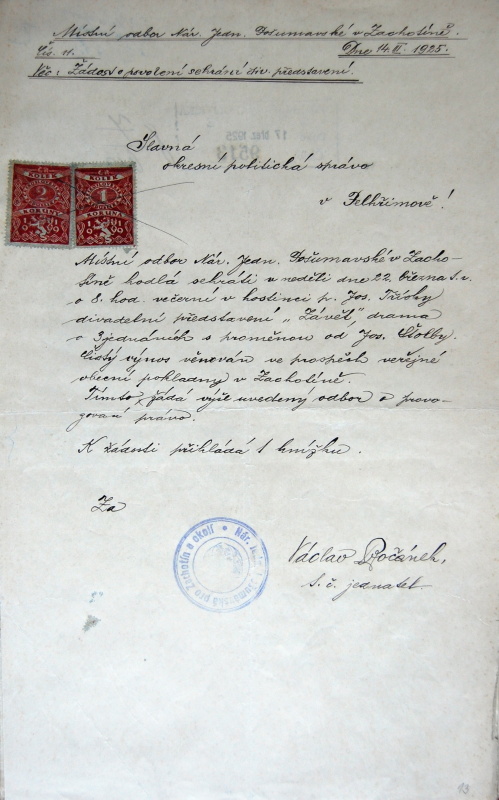 Místní odbor Nár. Jedn. Pošumavské v Zachotíně.
Čís. 11. Dne 14.III. 1925.
Věc: Žádost o povolení sehrání div. představení.
17 BŘE. 1925
9513
Slavná
okresní politická správo
v Pelhřimově!
KOLEK
2
KORUNY
KOLEK
1
KORUNA
Místní odbor Nár. Jedn. Pošumavské v Zacho-
tíně hodlá sehráti v neděli dne 22. března t.r.
o 8. hod. večerní v hostinci p. Jos. Tichy
divadelní představení „Závěť" drama
o 3 jednáních s proměnou od Jos. Štolby.
Čistý výnos věnován ve prospěch veřejné
obecní pokladny v Zachotíně.
Tímto, žádá výše uvedený odbor o provo-
zovaní právo.
K žádosti přikládá 1 knížku.
Za
Nár. Jedn. Pošumavská pro Zachotín a okolí
Václav Počánek,
t. č. jednatel.